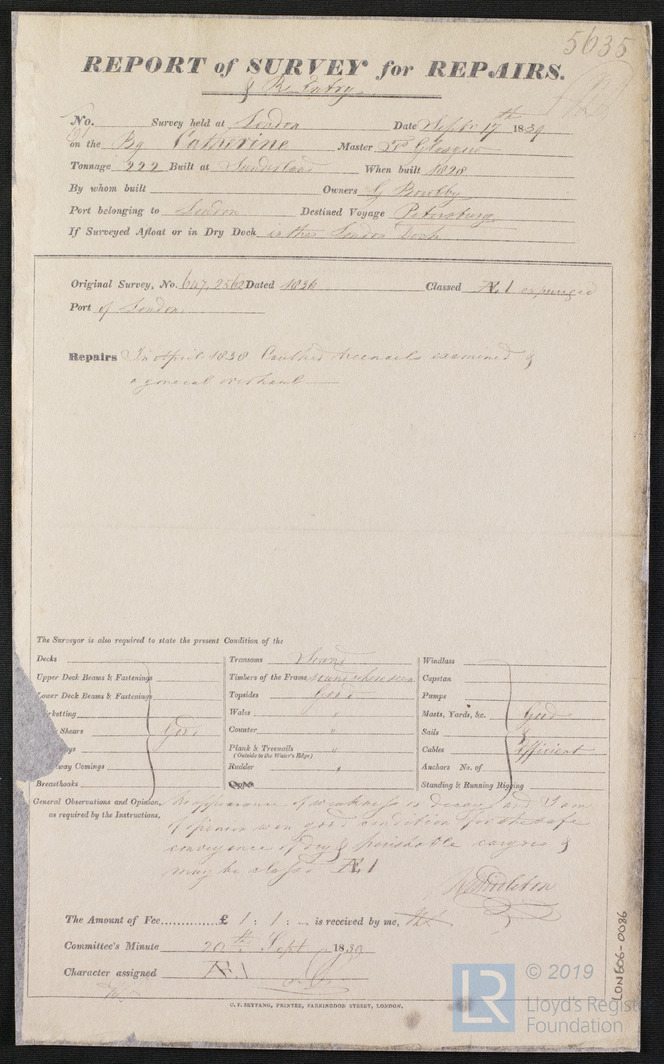 5635
REPORT of SURVEY for REPAIRS.
& Re Entry
No. Survey held at London Date Septr 17th 1839
on the Bg Catherine Master
Tonnage 222 Built at Sunderland When built 1828
By whom built Owners G
Port belonging to London Destined Voyage Petersburg
If Surveyed Afloat or in Dry Dock in the London Dock
Original Survey, No. 647, 2562 Dated 1836 Classed Æ 1 expunged
Port of London
Repairs In April 1838 Caulked treenails examined &
a general overhaul
The Surveyor is also required to state the present Condition of the
Decks
Upper Deck Beams & Fastenings
Lower Deck Beams & Fastenings
Shears Good
way Comings
Breasthooks
Transoms Sound
Timbers of the Frame sound where seen
Topsides Good
Wales "
Counter "
Plank & Treenails "
(Outside to the Water's Edge)
Rudder "
Windlass
Capstan
Pumps
Masts, Yards, &c. Good
Sails &
Cables Efficient
Anchors No. of
Standing & Running Rigging
General Observations and Opinion, No appearance of weakness or decay and I am
as required by the Instructions, of opinion is in good condition for the safe
conveyance of dry & perishable cargoes &
may be classed Æ 1
Middleton
The Amount of Fee.............. £ 1 : 1 : - is received by me,
Committee's Minute 20th Sept 1839
Character assigned Æ 1
C. F. SEYFANG, PRINTER, FARRINGDON STREET, LONDON.
LON606-0086
LR
© 2019
Lloyd's Register
Foundation